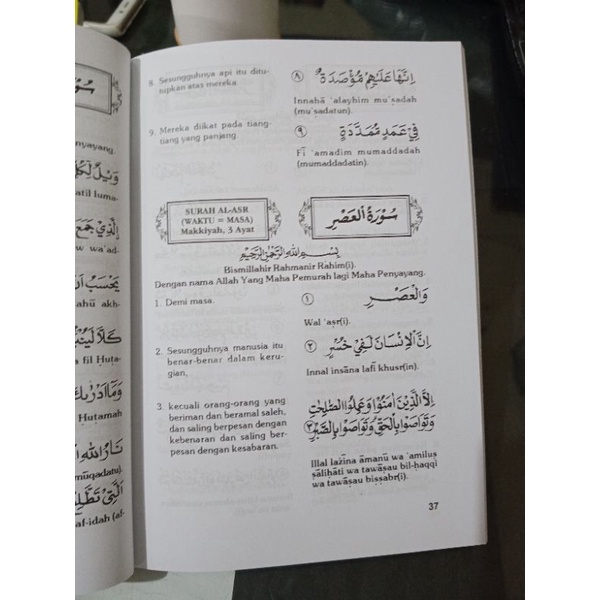 يَنية
وَيْلٌ لِّكُلِّ
atil luma-
الَّذِيْ جَمَعَ
w wa'ad-
يَحْسَبُ اَنَّ
ahū akh-
كَلَّا لَيُنْۢبَذَنَّ
a fil Ḥuṭa-
وَمَآ اَدْرٰىكَ
Ḥuṭamah
نَارُ اللّٰهِ
mūqadatu).
الَّتِيْ تَطَّلِعُ
af-idah (af-
8. Sesungguhnya api itu ditu-
tupkan atas mereka
اِنَّهَا عَلَيْهِمْ مُّؤْصَدَةٌ ٨
Innahā 'alayhim mu'ṣadah
(mu'ṣadatun).
9. Mereka diikat pada tiang-
tiang yang panjang.
فِيْ عَمَدٍ مُّمَدَّدَةٍ ٩
Fī 'amadim mumaddadah
(mumaddadatin).
SURAH AL-ASR
(WAKTU = MASA)
Makkiyah, 3 Ayat
سُوْرَةُ الْعَصْرِ
بِسْمِ اللّٰهِ الرَّحْمٰنِ الرَّحِيْمِ
Bismillahir Rahmanir Rahim(i).
Dengan nama Allah Yang Maha Pemurah lagi Maha Penyayang.
1. Demi masa.
وَالْعَصْرِ ١
Wal 'aṣr(i).
2. Sesungguhnya manusia itu
benar-benar dalam keru-
gian,
اِنَّ الْاِنْسَانَ لَفِيْ خُسْرٍ ٢
Innal insāna lafī khusr(in).
3. kecuali orang-orang yang
beriman dan beramal saleh,
dan saling berpesan dengan
kebenaran dan saling ber-
pesan dengan kesabaran.
اِلَّا الَّذِيْنَ اٰمَنُوْا وَعَمِلُوا الصّٰلِحٰتِ
وَتَوَاصَوْا بِالْحَقِّ وَتَوَاصَوْا بِالصَّبْرِ ٣
Illal lażīna āmanū wa 'amiluṣ
ṣāliḥāti wa tawāṣau bil-ḥaqqi
wa tawāṣau biṣṣabr(i).
37